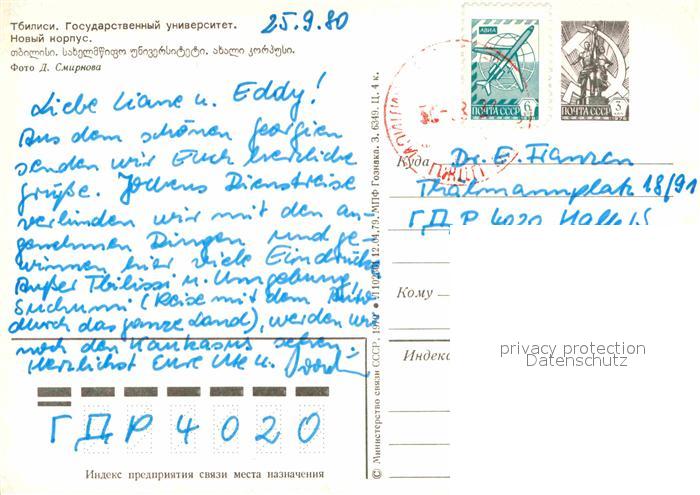 Тбилиси. Государственный университет.
Новый корпус.
თბილისი. სახელმწიფო უნივერსიტეტი. ახალი კორპუსი.
Фото Д. Смирнова
25.9.80
Liebe Liane u. Eddy!
Aus dem schönen Georgien
senden wir Euch herzliche
Grüße. Jochens Dienstreise
verbinden wir mit den an-
genehmen Dingen und ge-
winnen hier viele Eindrücke
Außer Tbilissi u. Umgebung,
Suchumi (Reise mit dem Auto
durch das ganze Land), werden wir
noch den Kaukasus sehen.
Herzlichst Eure Ute u.
ГДР 4020
Индекс предприятия связи места назначения
© Министерство связи СССР, 12.04.79. МПФ Гознака. З. 6349. Ц. 4 к.
АВИА
ПОЧТА СССР 6К
ПОЧТА СССР 3К
Куда Dr. E. Franzen
Thälmannplatz 18/91
ГДР 4020 Halle/S
Кому
Индекс
privacy protection
Datenschutz